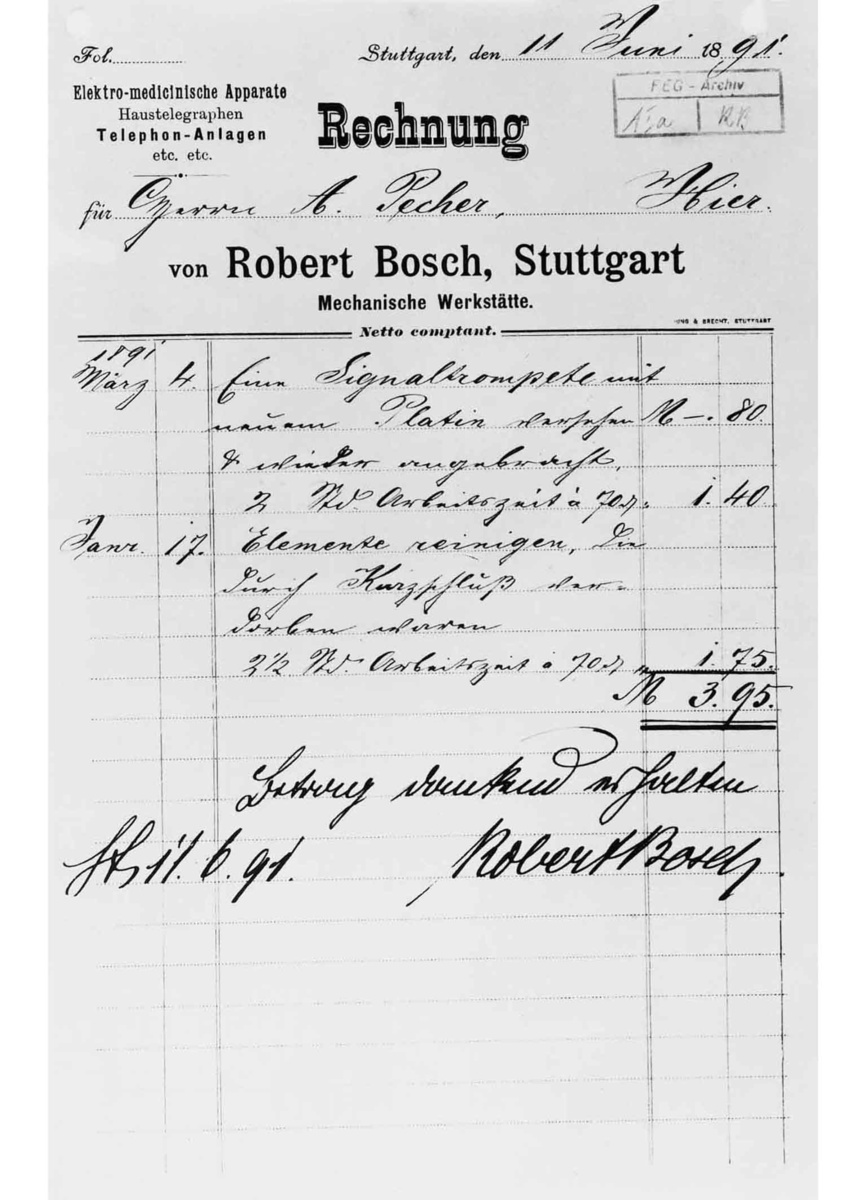 Fol.
Stuttgart, den 11 Juni 1891.
FEG - Archiv
Elektro-medicinische Apparate
Haustelegraphen
Telephon-Anlagen
etc. etc.
Rechnung
für Herrn A. Pecher, Hier.
von Robert Bosch, Stuttgart
Mechanische Werkstätte.
& BRECHT, STUTTGART
Netto comptant.
1891
März 4. Eine Signaltrompete mit
neuem Platin versehen M –. 80.
& wieder angebracht.
2 Std. Arbeitszeit à 70 ₰ " 1. 40
Janr. 17. Elemente reinigen, die
durch Kurzschluß ver-
dorben waren
2½ Std Arbeitszeit à 70 ₰ " 1. 75.
M 3. 95.
Betrag dankend erhalten
St. 11. 6. 91. Robert Bosch.